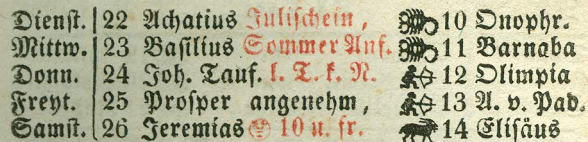 Dienst. 22 Achatius Julischein, 10 Onophr.
Mittw. 23 Basilius Sommer Anf. 11 Barnaba
Donn. 24 Joh. Tauf. l. T. k. N. 12 Olimpia
Freyt. 25 Prosper angenehm, 13 A. v. Pad.
Samst. 26 Jeremias 10 u. fr. 14 Elisäus